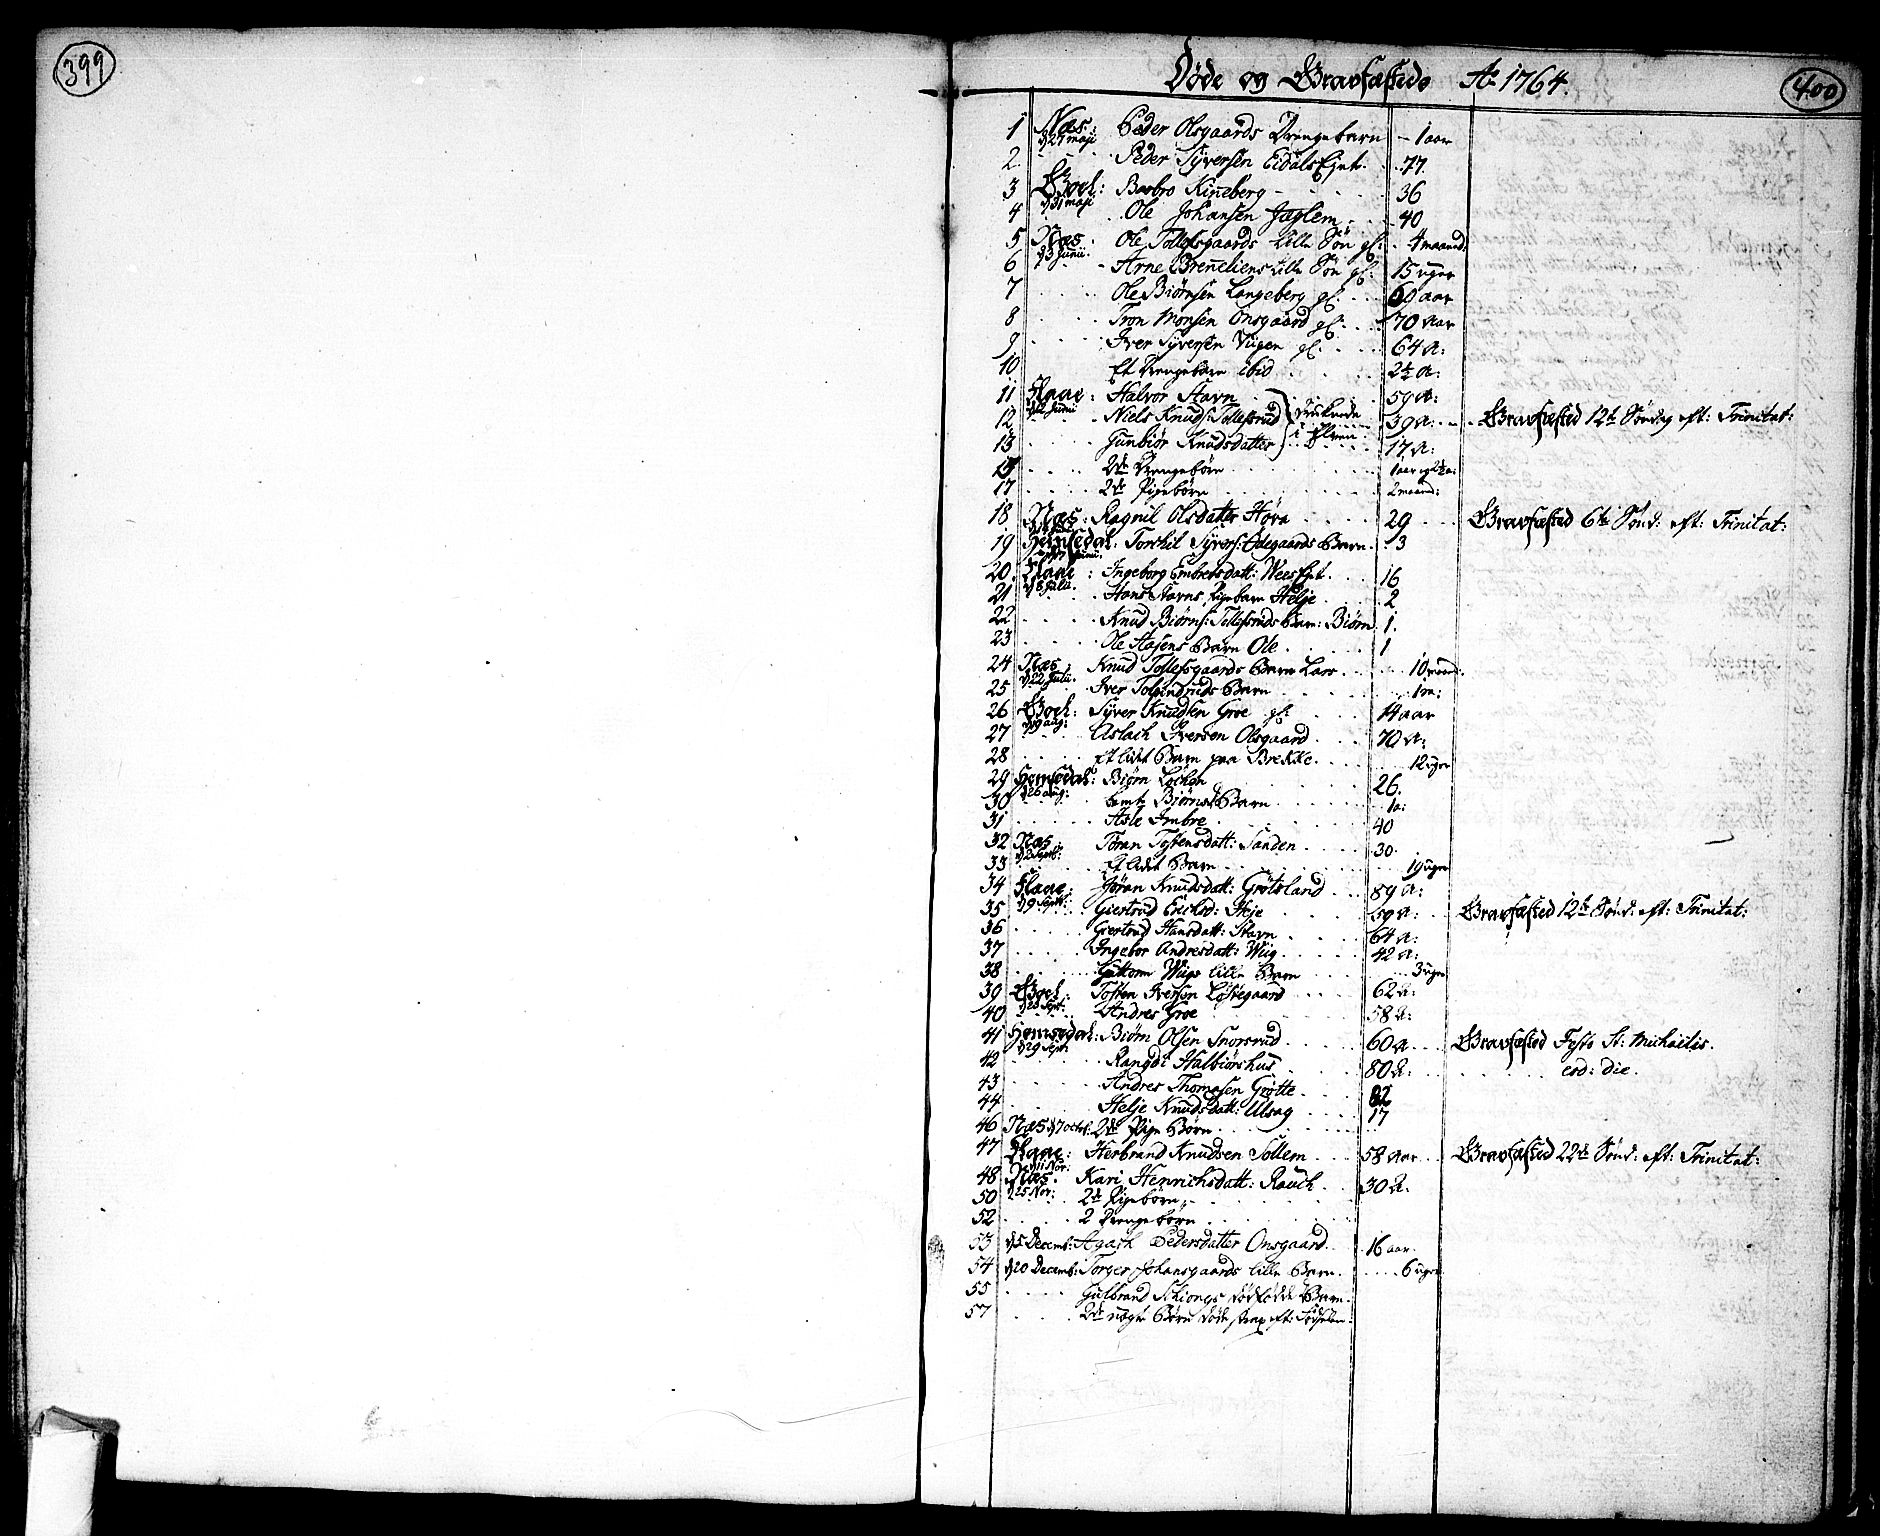 399
Døde og Gravfæstede Ao 1764.
400
1 Næs: Peder Olsgaards Drengebarn - 1 aar
d 27 maji
2 Peder Syversen Eidals Egnt. 77.
3 Goel: Barbro Kinneberg - 36
d 31 maji
4 Ole Johansen Jæglem 40
5 Næs Ole Tollefsgaards lille Søn gl: 4 maaned:
d 3 Junii.
6 Arne Brenneliens lille Søn gl: 15 uger
7 Ole Biørnsen Langeberg gl. 60 aar
8 Tron Monsen Onsgaard gl: 70 aar
9 Iver Syversen Viigen gl: 64 A:
10 Et Drengebarn ibid 2½ A:
11 Flaae: Halvor Stavn 59 A:
d 12 Junii
12 Niels Knuds: Tollefsrud 39 A: Gravfæsted 12te Søndag eft: Trinitat:
13 Gunbiør Knudsdatter } druknede i Elven 17 A:
15 2de Drengebørn 1 aar og 2½ a:
17 2de Pigebørn 2 maaned:
18 Næs: Ragnil Olsdatter Høva 29 Gravfæsted 6te Sønd: eft: Trinitat:
19 Hemsedal: Torchil Syvers: Ødegaards Barn 3
20 Flaae: Ingeborg Embretsdatt: Wees Egnt. 16
d 8 Julii.
21 Hans Stavns Pigebarn Helje 2
22 Knud Biørns: Tollefsruds Barn: Biørn 1.
23 Ole Hajens Barn Ole 1
24 Næs Knud Tollefsgaards Barn Lars 10 maand.
d 22 Julii.
25 Iver Barn 1 a:
26 Goel: Syver Knudsen Groe gl: 14 aar
d 19 aug:
27 Aslach Iversen Olsgaard 70 A:
28 Et lidet Barn paa Brekke 12 uger
29 Hemsedal: Biørn Løchen 26.
d 26 aug:
30 bemte Biørns Barn 1 a:
31 Asle Imbre 40
32 Næs Tøran Tostensdatt: Sanden 30
d 2 Septb:
33 Et lidet Barn 19 uger
34 Flaae: Jøran Knudsdatt: Grøtsland 89 A:
d 9 Septb:
35 Giertrud Erichsd: Skje 59 A: Gravfæsted 12te Sønd: eft: Trinitat:
36 Giertrud Hansdatt: Stavn 64 A:
37 Ingebor Andresdatt: Wiig 42 A:
38 Guttorm Wiigs lille Barn 3 uger
39 Goel: Tosten Iversen Løstegaard 62 A:
d 23 Sept:
40 Andres Groe 58 A:
41 Hemsedal: Biørn Olsen Snorsrud 60 A Gravfæsted Festo St: Michaelis.
d 29 Sept:
42 Rangdi Halbiørshus 80 A: eod: die.
43 Andres Thomasen Grøtte 82
44 Helje Knudsdatt: Ulsag 17
46 Næs d 7 octbr: 2de Pige Børn
47 Flaae: Herbrand Knudsen Sollem 58 aar Gravfæsted 22de Sønd: eft: Trinitat:
d 11 Nov:
48 Næs. Kari Henrichsdatt: Rauch 30 A.
d 25 Nov:
50 2de Pigebørn
52 2 Drengebørn
53 d 5 Decemb: Agath Pedersdatter Onsgaard 16 aar
54 d 20 Decemb: Torger Johansgaards lille Barn 6 uger
55 Gulbrand Skiongs dødfødde Barn
57 2de nøgne Børn døde strax eft: Fødselen